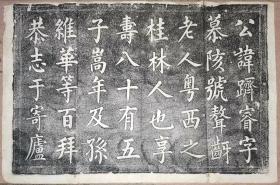 公諱躋睿字
慕陔號聱齖
老人粵西之
桂林人也享
壽八十有五
子嵩年及孫
維華等百拜
恭志于寄廬